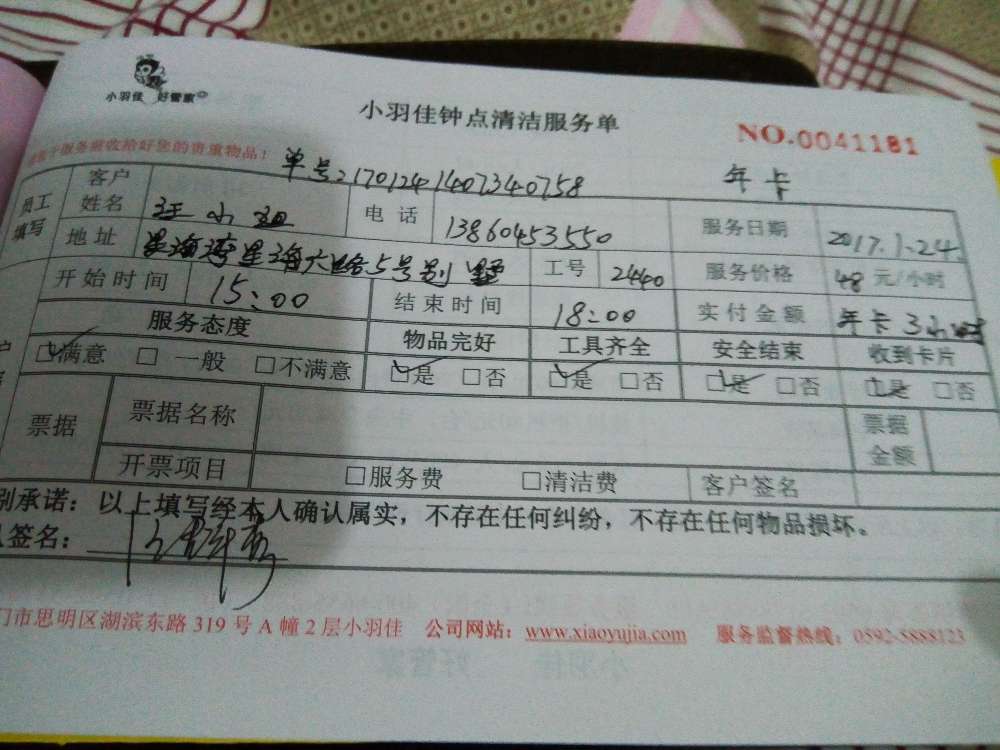 小羽佳 好管家
小羽佳钟点清洁服务单
NO.0041181
服务前收拾好您的贵重物品!
单号:21701241407340758
年卡
员工填写
客户姓名 汪小姐 电话 13860453550 服务日期 2017.1.24.
地址 星海湾星海大路5号别墅 工号 2440 服务价格 48 元/小时
开始时间 15:00 结束时间 18:00 实付金额 年卡3小时
服务态度 物品完好 工具齐全 安全结束 收到卡片
☑满意 □一般 □不满意 ☑是 □否 ☑是 □否 ☑是 □否 ☑是 □否
票据 票据名称 票据金额
开票项目 □服务费 □清洁费 客户签名
别承诺:以上填写经本人确认属实,不存在任何纠纷,不存在任何物品损坏。
签名:
门市思明区湖滨东路 319 号 A 幢 2 层小羽佳 公司网站:www.xiaoyujia.com 服务监督热线:0592-5888123